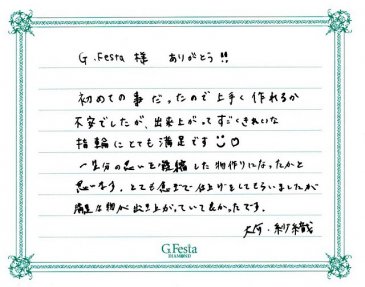 G.Festa 様 ありがとう!!
初めての事だったので上手く作れるか
不安でしたが、出来上がってすごくきれいな
指輪にとても満足です
一生分の思いを凝縮した物作りになったかと
思います。とても急ぎで仕上げをしてもらいましたが
満足な物が出来上がっていて良かったです。
大河・紗織
G.Festa
DIAMOND